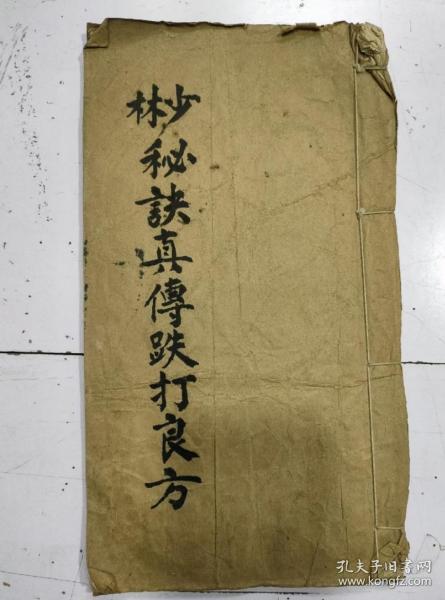 少林秘訣真傳跌打良方
孔夫子旧书网
www.kongfz.com